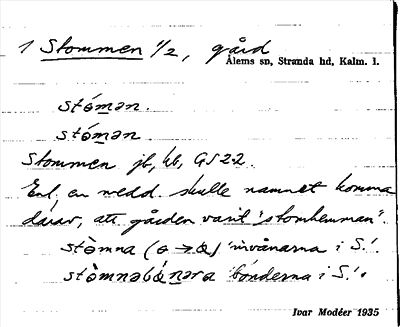 1 Stommen 1/2, gård
Ålems sn, Stranda hd, Kalm. l.
stómən.
stómən
Stommen jb, kb, GS 22.
Enl. en medd. skulle namnet komma
därav, att gården varit "stomhemman".
stòmna (o → ) invånarna i S.
stòmnəbónəra bönderna i S.
Ivar Modéer 1935